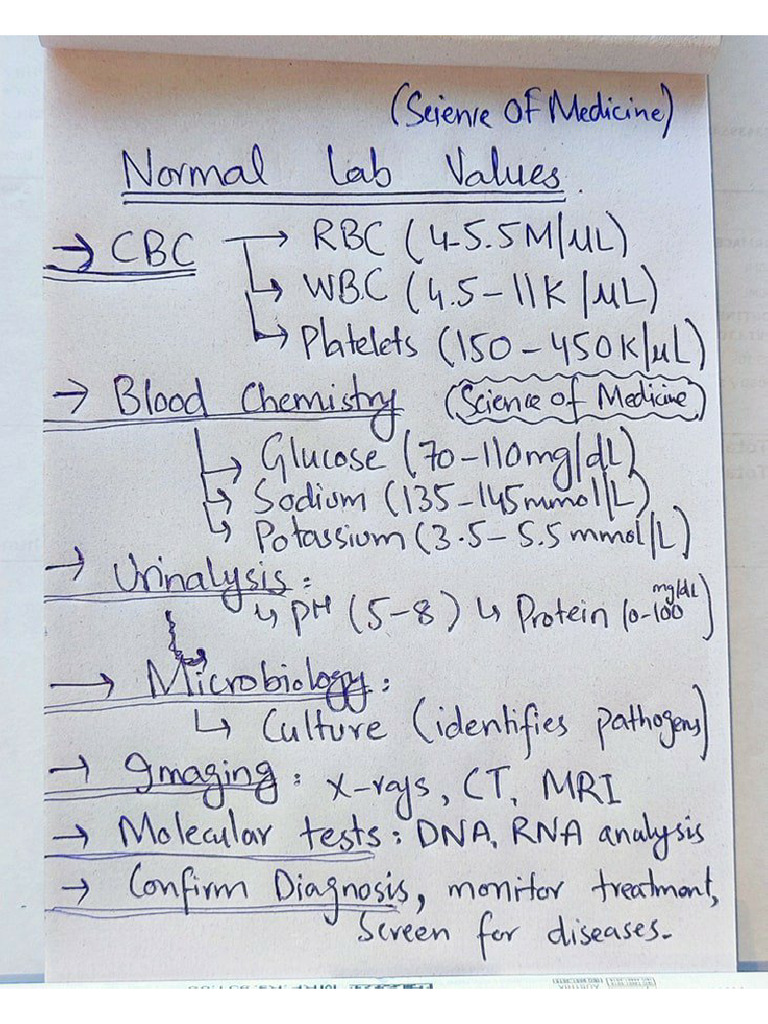 (Science Of Medicine)
Normal Lab Values.
→ CBC → RBC (4-5.5M/µL)
↳ WBC (4.5-11K/µL)
↳ Platelets (150-450K/µL)
→ Blood Chemistry (Science of Medicine)
↳ Glucose (70-110mg/dL)
↳ Sodium (135-145mmol/L)
↳ Potassium (3.5-5.5mmol/L)
→ Urinalysis:
↳ PH (5-8) ↳ Protein (0-100 mg/dL)
→ Microbiology:
↳ Culture (identifies pathogens)
→ Imaging: X-rays, CT, MRI
→ Molecular tests: DNA, RNA analysis
→ Confirm Diagnosis, monitor treatment,
Screen for diseases.